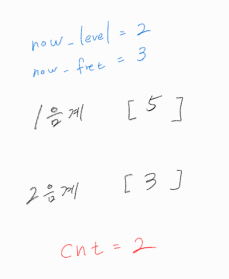 now_level = 2
now_fret = 3
1음계 [ 5 ]
2음계 [ 3 ]
cnt = 2